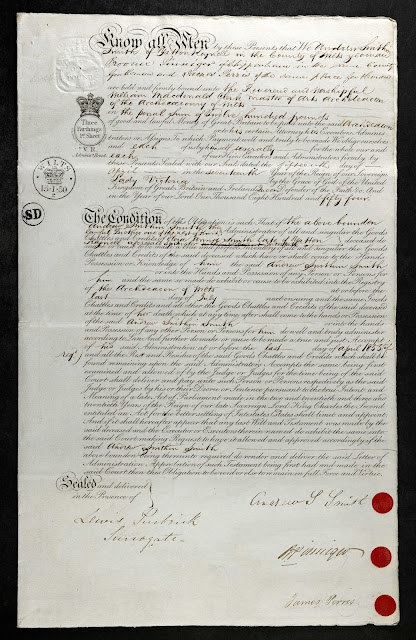 Know all Men by these Presents that We Andrew Smith
Smith of Yatton Keynell in the County of Wilts Yeoman
of Chippenham in the same County
Gentleman and James of the same place
are held and firmly bound unto the Reverend and Worshipful
William Macdonald Clerk Master of Arts Archdeacon
of the Archdeaconry of Wilts
in the penal Sum of twelve hundred pounds
of good and lawful Money of Great Britain to be paid to the said Archdeacon
or to his certain Attorney his Executors Adminis-
trators or Assigns To which Payment well and truly to be made We oblige ourselves
and each of us by himself severally for the whole our and
each of our Heirs Executors and Administrators firmly by
these Presents Sealed with our Seals dated the fifteenth day of
April in the seventeenth Year of the Reign of our Sovereign
Lady Victoria by the Grace of God of the United
Kingdom of Great Britain and Ireland Queen Defender of the Faith &c. And
in the Year of our Lord One Thousand Eight Hundred and fifty four
Three
Farthings
P. Sheet
V R
WILTS
15·1·50
SD
The Condition of this Obligation is such That if the above bounden
Andrew Smith the
Administrator of all and singular the Goods
Chattels and Credits of Smith late of Yatton
Keynell deceased do
make or cause to be made a true and perfect Inventory of all and singular the Goods
Chattels and Credits of the said deceased which have or shall come to the Hands
Possession or Knowledge of him the said Andrew Smith
or into the Hands and Possession of any Person or Persons for
him and the same so made do exhibit or cause to be exhibited into the Registry
of the Archdeacon of Wilts at or before the
last day of July next ensuing and the same Goods
Chattels and Credits and all other the Goods Chattels and Credits of the said deceased
at the time of her death which at any time after shall come to the hands or Possession
of the said Andrew Smith or into the hands
and Possession of any other Person or Persons for him do well and truly administer
according to Law And further do make or cause to be made a true and just Account
of his said Administration at or before the last day of April 1855
And all the Rest and Residue of the said Goods Chattels and Credits which shall be
found remaining upon the said Administrators Accompts the same being first
examined and allowed of by the Judge or Judges for the time being of the said
Court shall deliver and pay unto such Person or Persons respectively as the said
Judge or Judges by his or their Decree or Sentence pursuant to the true Intent and
Meaning of a late Act of Parliament made in the two and twentieth and three and
twentieth Years of the Reign of our late Sovereign Lord King Charles the Second
entitled an Act for the better settling of Intestates Estates shall limit and appoint
And if it shall hereafter appear that any last Will and Testament was made by the
said deceased and the Executor or Executors therein named do exhibit the same unto
the said Court making Request to have it allowed and approved accordingly if the
said Andrew Smith
above bounden being thereunto required do render and deliver the said Letter of
Administration (Approbation of such Testament being first had and made) in the
said Court then this Obligation to be void or else to remain in full Force and Virtue
Sealed and delivered
in the Presence of
Lewis
Surrogate
Andrew S Smith
James